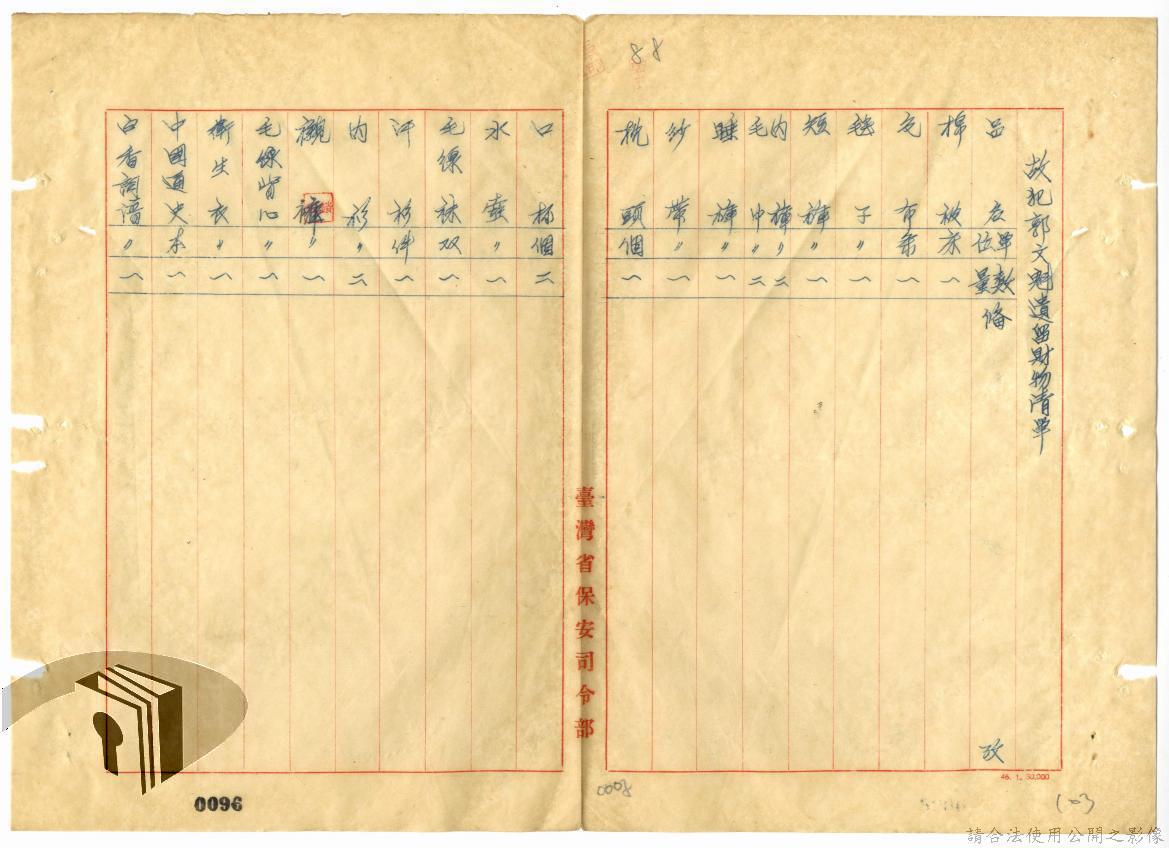 88
故犯郭文魁遺留財物清單
品名 單位 數量 備攷
棉被 床 一
文布 条 一
毯子 〃 一
短褲 〃 一
內褲 〃 二
毛巾 〃 二
睡褲 〃 一
紗帶 〃 一
枕頭 個 一
臺灣省保安司令部
口杯 個 二
水壺 〃 一
毛線袜 双 一
汗衫 件 一
內衫 〃 二
襯褲 〃 一
毛線背心 〃 一
衛生衣 〃 一
中國通史 本 一
白香詞譜 〃 一
46. 1. 50,000
0096
0008
請合法使用公開之影像